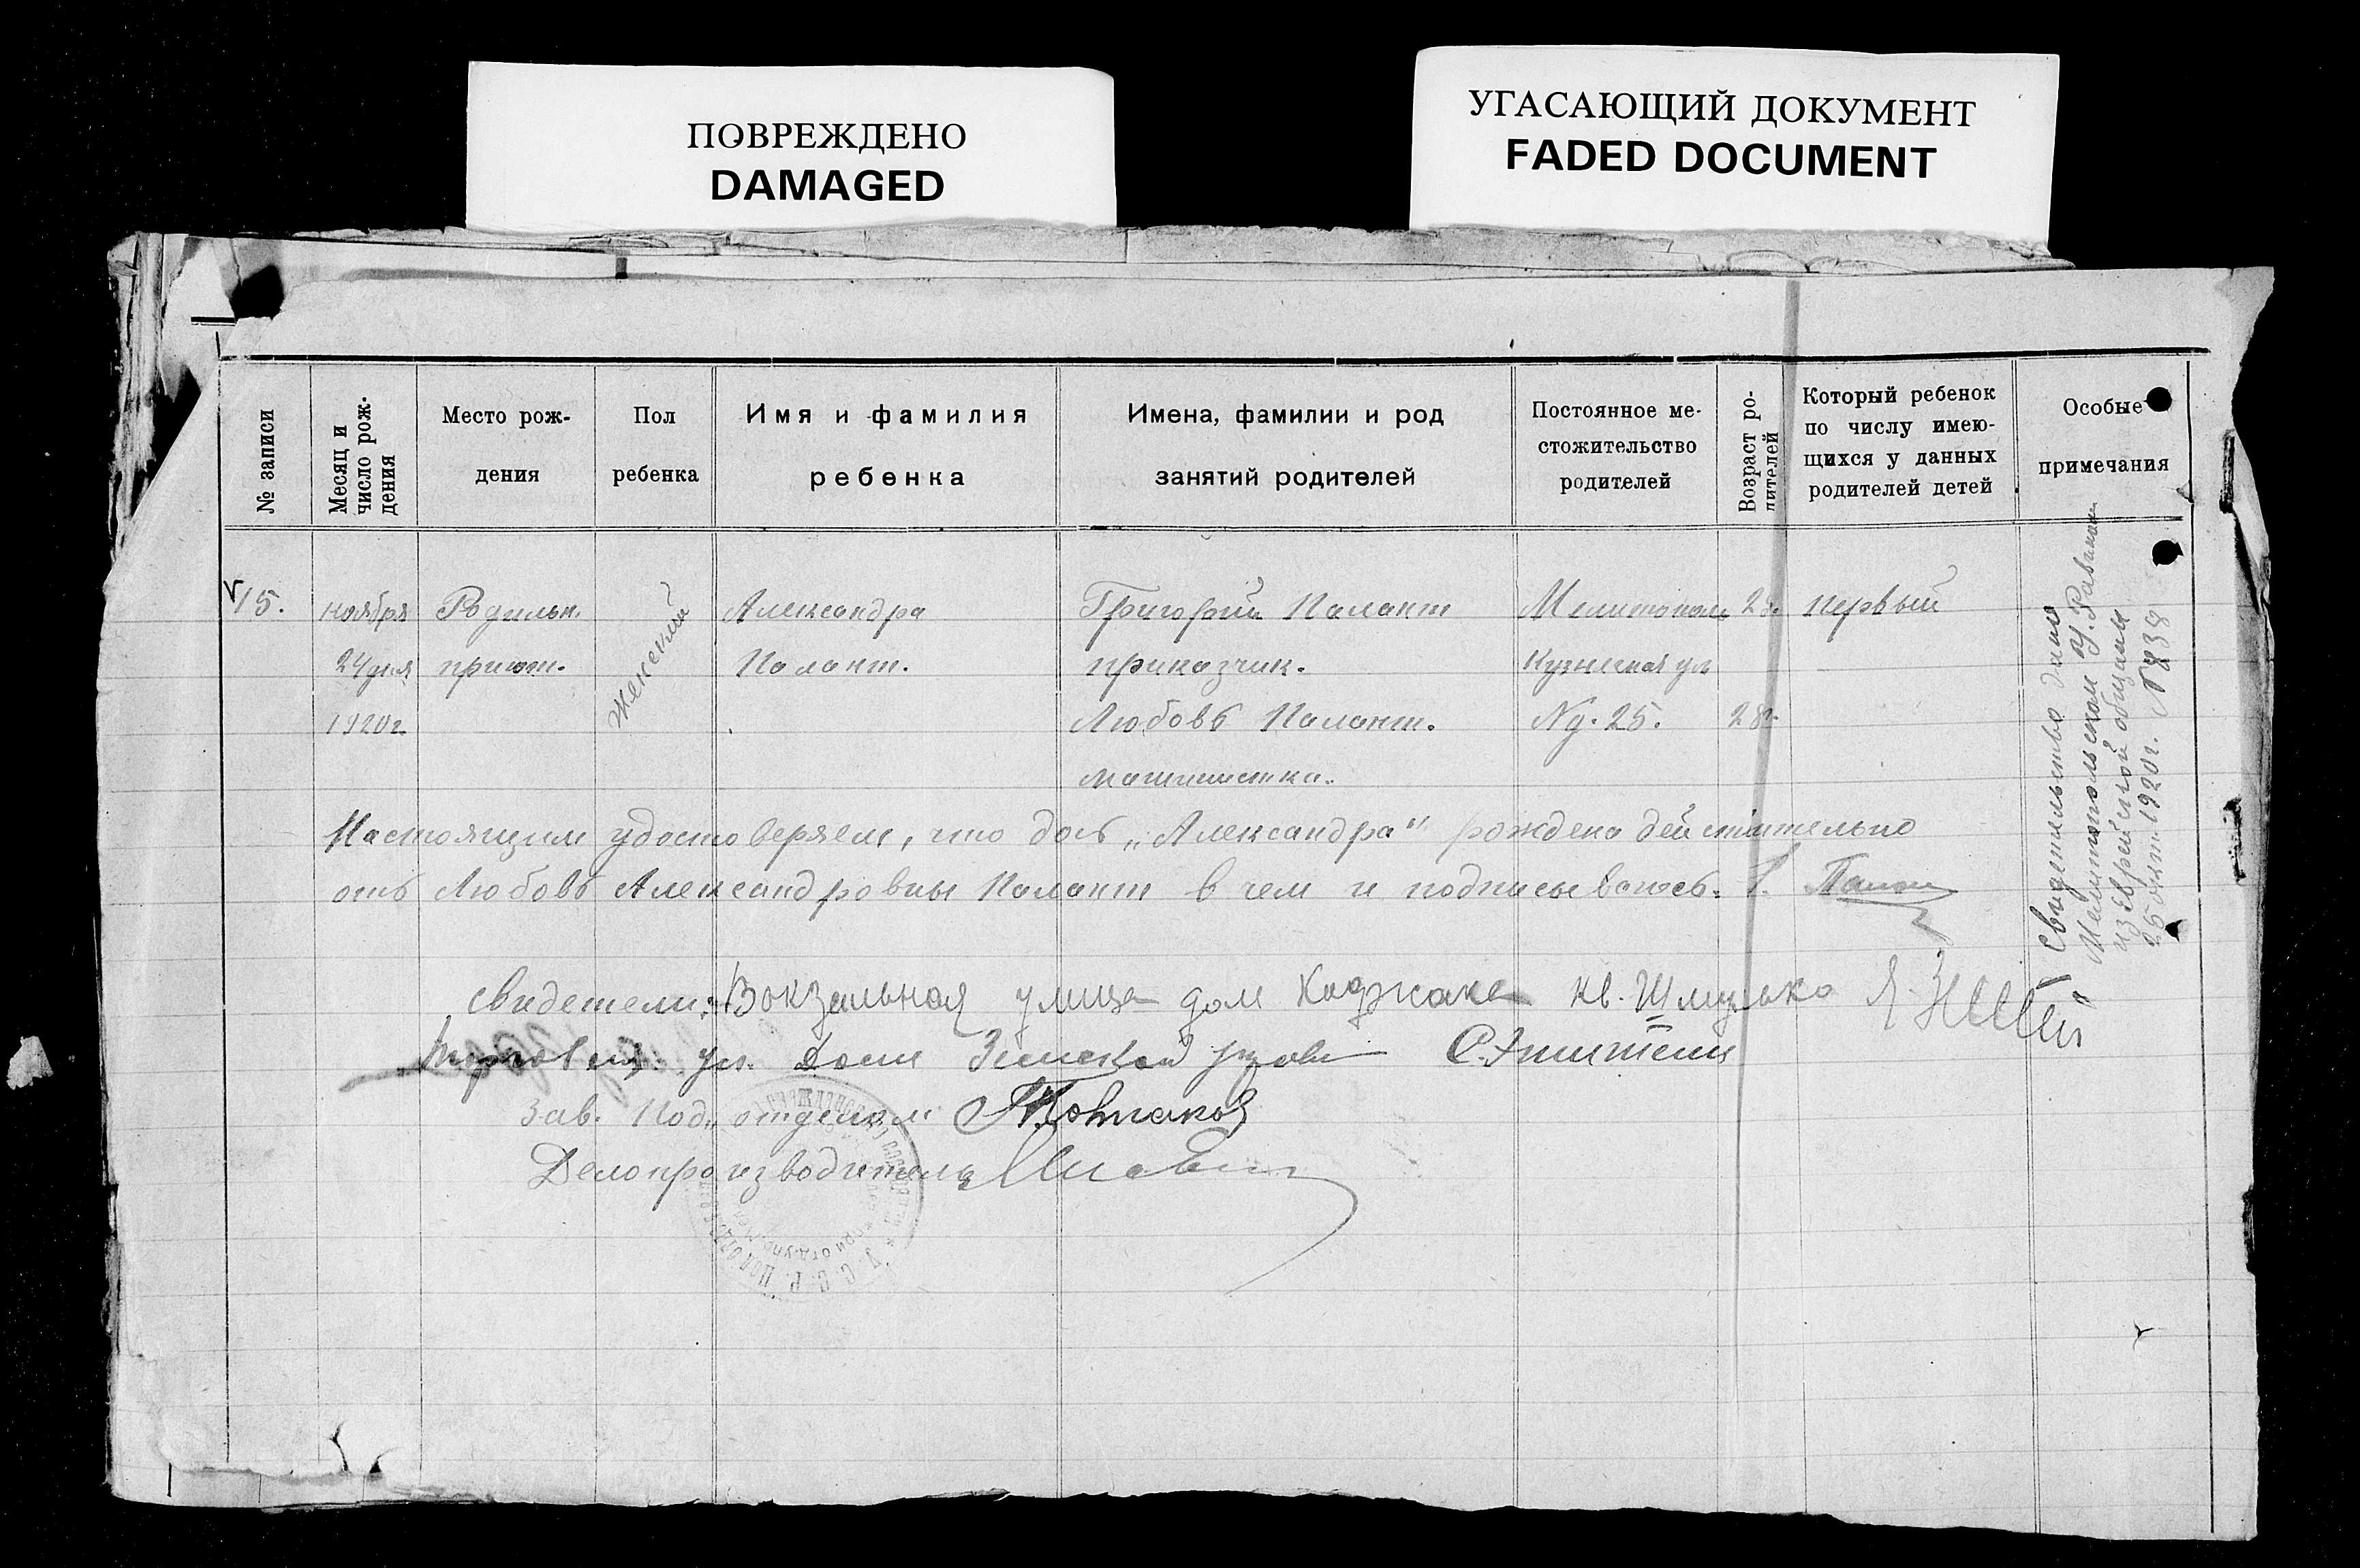 ПОВРЕЖДЕНО
DAMAGED
УГАСАЮЩИЙ ДОКУМЕНТ
FADED DOCUMENT
№ записи
Месяц и
число рож-
дения
Место рож-
дения
Пол
ребенка
Имя и фамилия
ребенка
Имена, фамилии и род
занятий родителей
Постоянное ме-
стожительство
родителей
Возраст ро-
дителей
Который ребенок
по числу имею-
щихся у данных
родителей детей
Особые
примечания
15.
ноября
24 дня
1920 г.
Родильн.
приют.
Женский
Александра
Палант.
Григорий Палант
приказчик.
Любовь Палант.
машинистка.
Мелитополь
Кузнечная ул
№ 25.
28г.
Первый
Свидетельство дано
Мелитопольском У. Раввином
из Еврейской общины
25 окт. 1920г. № 838
Настоящим удостоверяем, что дочь „Александра" рождена действительно
от Любовь Александровны Палант в чем и подписываюсь. Г. Палант
Свидетели: Вокзальная улица дом кв. Шмулько
Торговая ул. Дом Земской С. Эпштейн
Зав. Под. отделом
Делопроизводитель